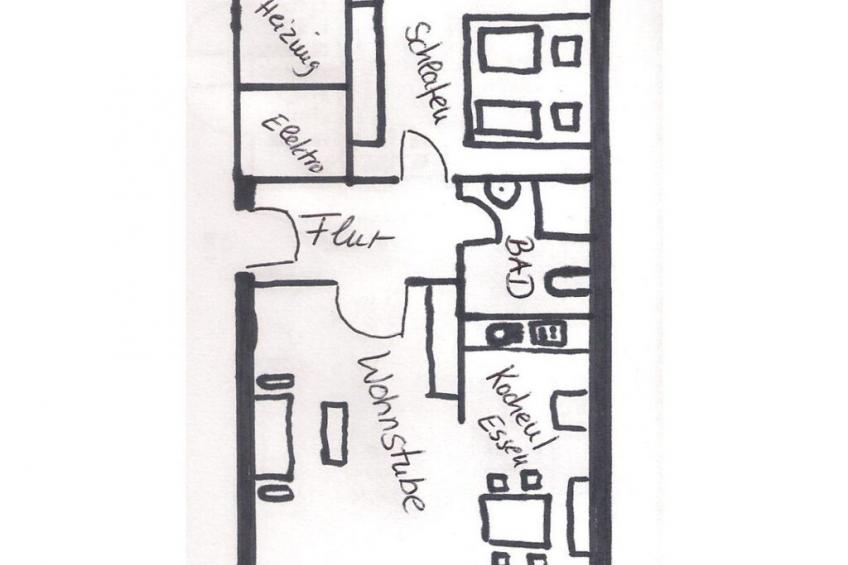 Heizung
Schlafen
Elektro
Flur
BAD
Wohnstube
Kochen/
Essen